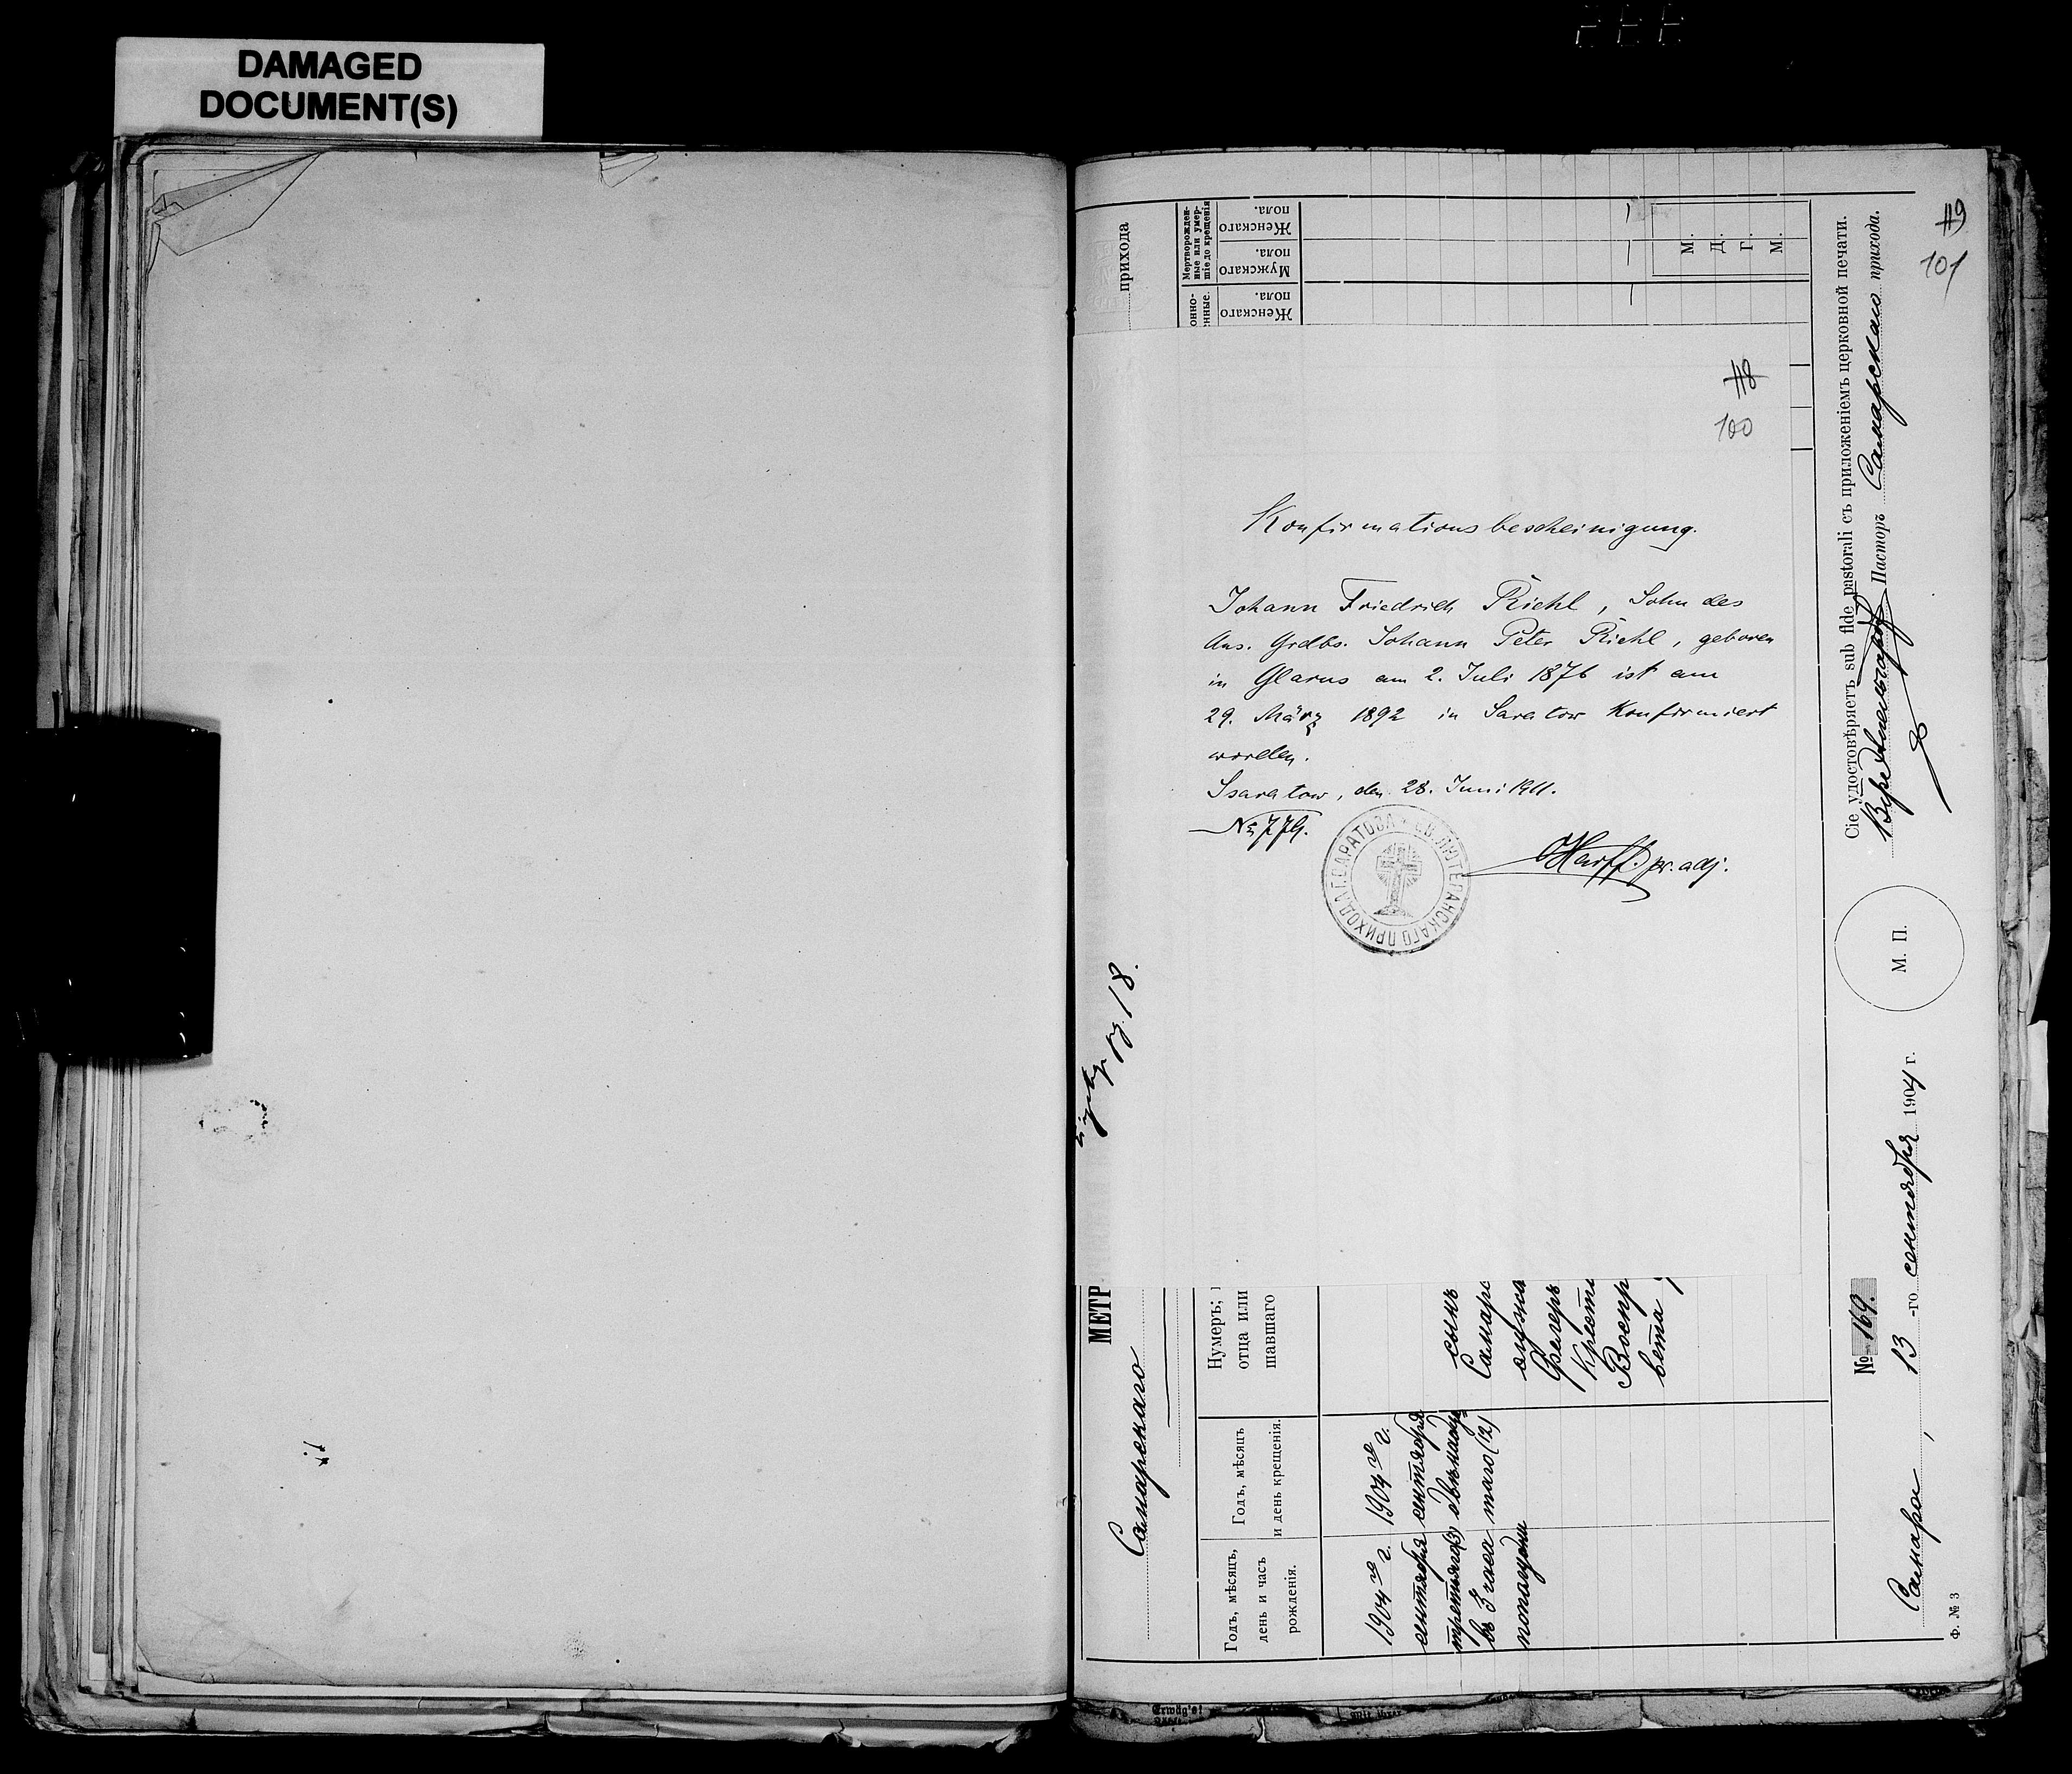 DAMAGED
DOCUMENT(S)
119
101
118
100
Konfirmationsbescheinigung.
Johann Friedrich Riehl, Sohn des
Ans. Grdbs. Johann Peter Riehl, geboren
in Glarus am 2. Juli 1876 ist am
29. März 1892 in Saratow konfirmiert
worden.
Ssaratow, den 28. Juni 1911.
№ 779.
Harff. pr. adj.
ЕВ. ЛЮТЕРАНСКАГО ПРИХОДА Г. САРАТОВА
МЕТР
Самарскаго
прихода
18.
Годъ, мѣсяцъ,
день и часъ
рожденія.
Годъ, мѣсяцъ
и день крещенія.
Нумеръ;
отца или
шавшаго
онно-
нные.
Женскаго
пола.
Мертворожден-
ные или умер-
шіе до крещенія
Мужскаго
пола.
Женскаго
пола.
1904 го г.
сентября
третьяго (3)
въ 3 часа
пополудни
1904 го г.
сентября
двѣнадца
таго (12)
сынъ
Самарс
Крести
Воспр
вета
М.
Д.
Г.
М.
№ 169.
Сіе удостовѣряетъ sub fide pastorali съ приложеніемъ церковной печати.
Самара, 13 -го сентября 1904 г.
М. П.
Пасторъ Самарскаго прихода.
Ф. № 3
Erwäg's!